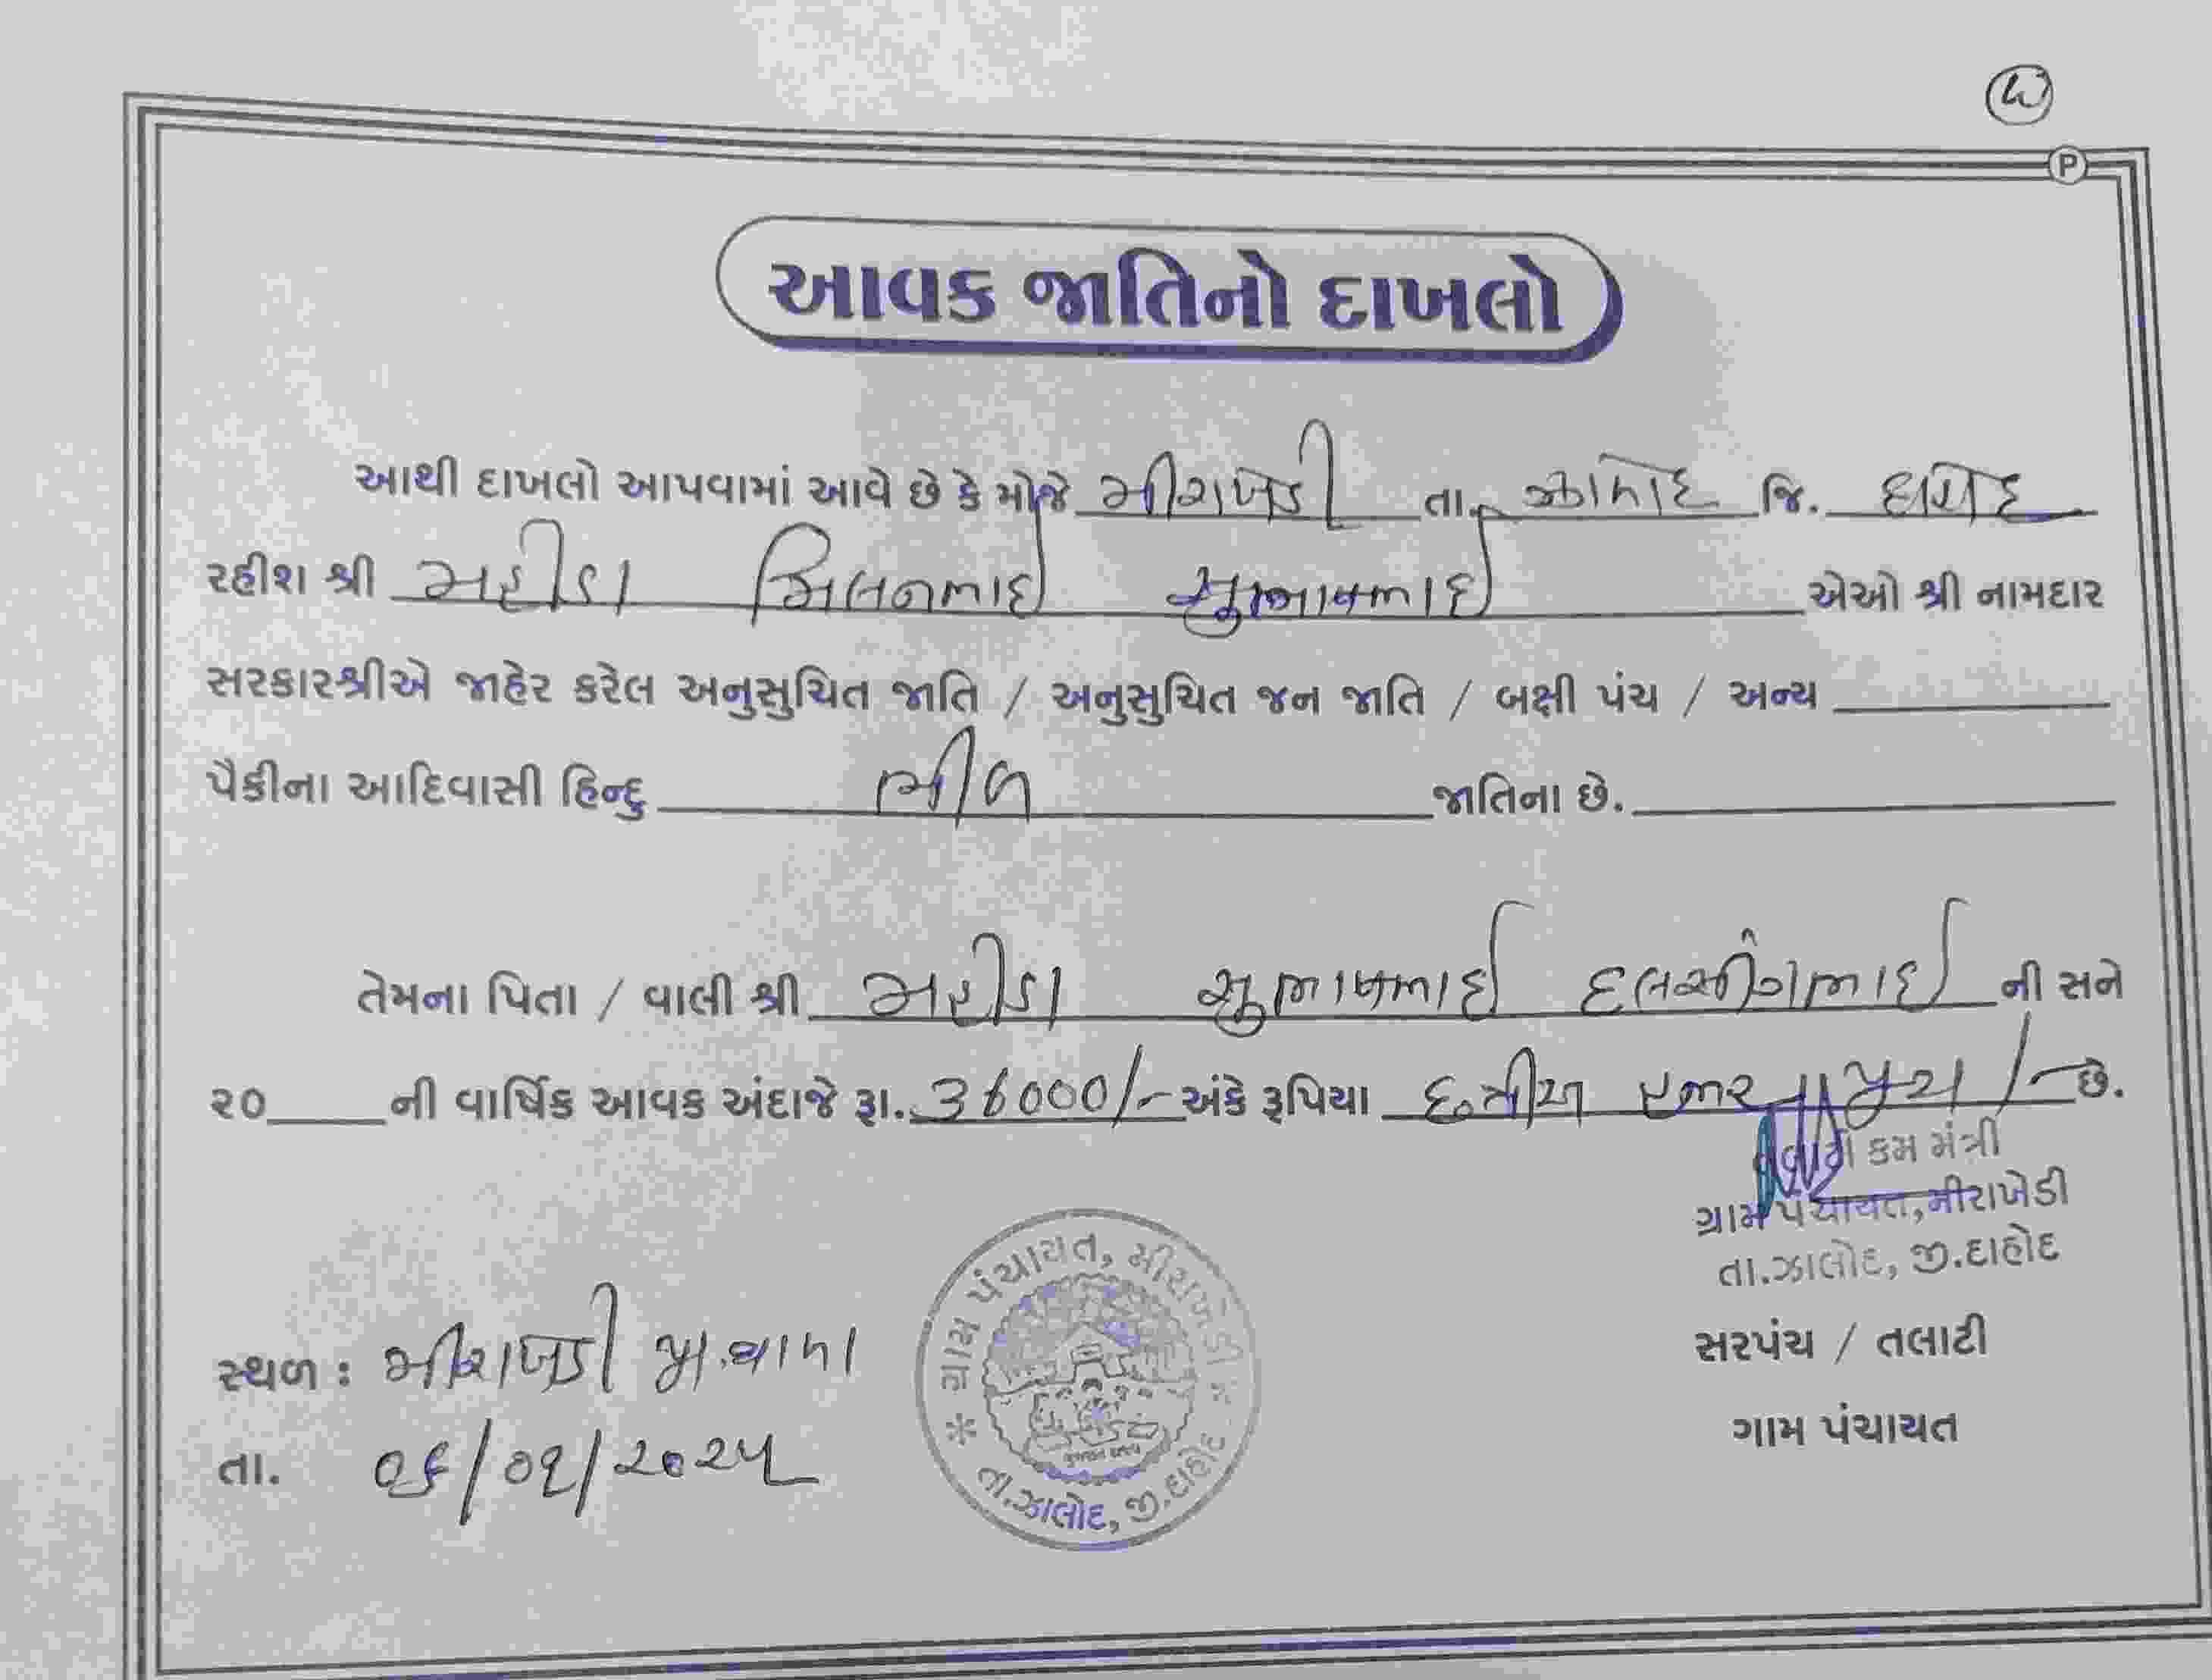 P
આવક જાતિનો દાખલો
આથી દાખલો આપવામાં આવે છે કે મોજે મીરાખેડી તા. ઝાલોદ જિ. દાહોદ
રહીશ શ્રી મહીડા મિલનભાઈ સુભાષભાઈ એઓ શ્રી નામદાર
સરકારશ્રીએ જાહેર કરેલ અનુસુચિત જાતિ / અનુસુચિત જન જાતિ / બક્ષી પંચ / અન્ય
પૈકીના આદિવાસી હિન્દુ ભીલ જાતિના છે.
તેમના પિતા / વાલી શ્રી મહીડા સુભાષભાઈ દલસીંગભાઈ ની સને
૨૦____ની વાર્ષિક આવક અંદાજે રૂા. 36000/- અંકે રૂપિયા છત્રીસ હજાર પુરા /- છે.
કમ મંત્રી
ગ્રામ પંચાયત, મીરાખેડી
તા.ઝાલોદ, જી.દાહોદ
સરપંચ / તલાટી
ગામ પંચાયત
સ્થળ : મીરાખેડી
તા. ૦૬/૦૧/૨૦૨૫
ગ્રામ પંચાયત, મીરાખેડી * તા.ઝાલોદ, જી.દાહોદ